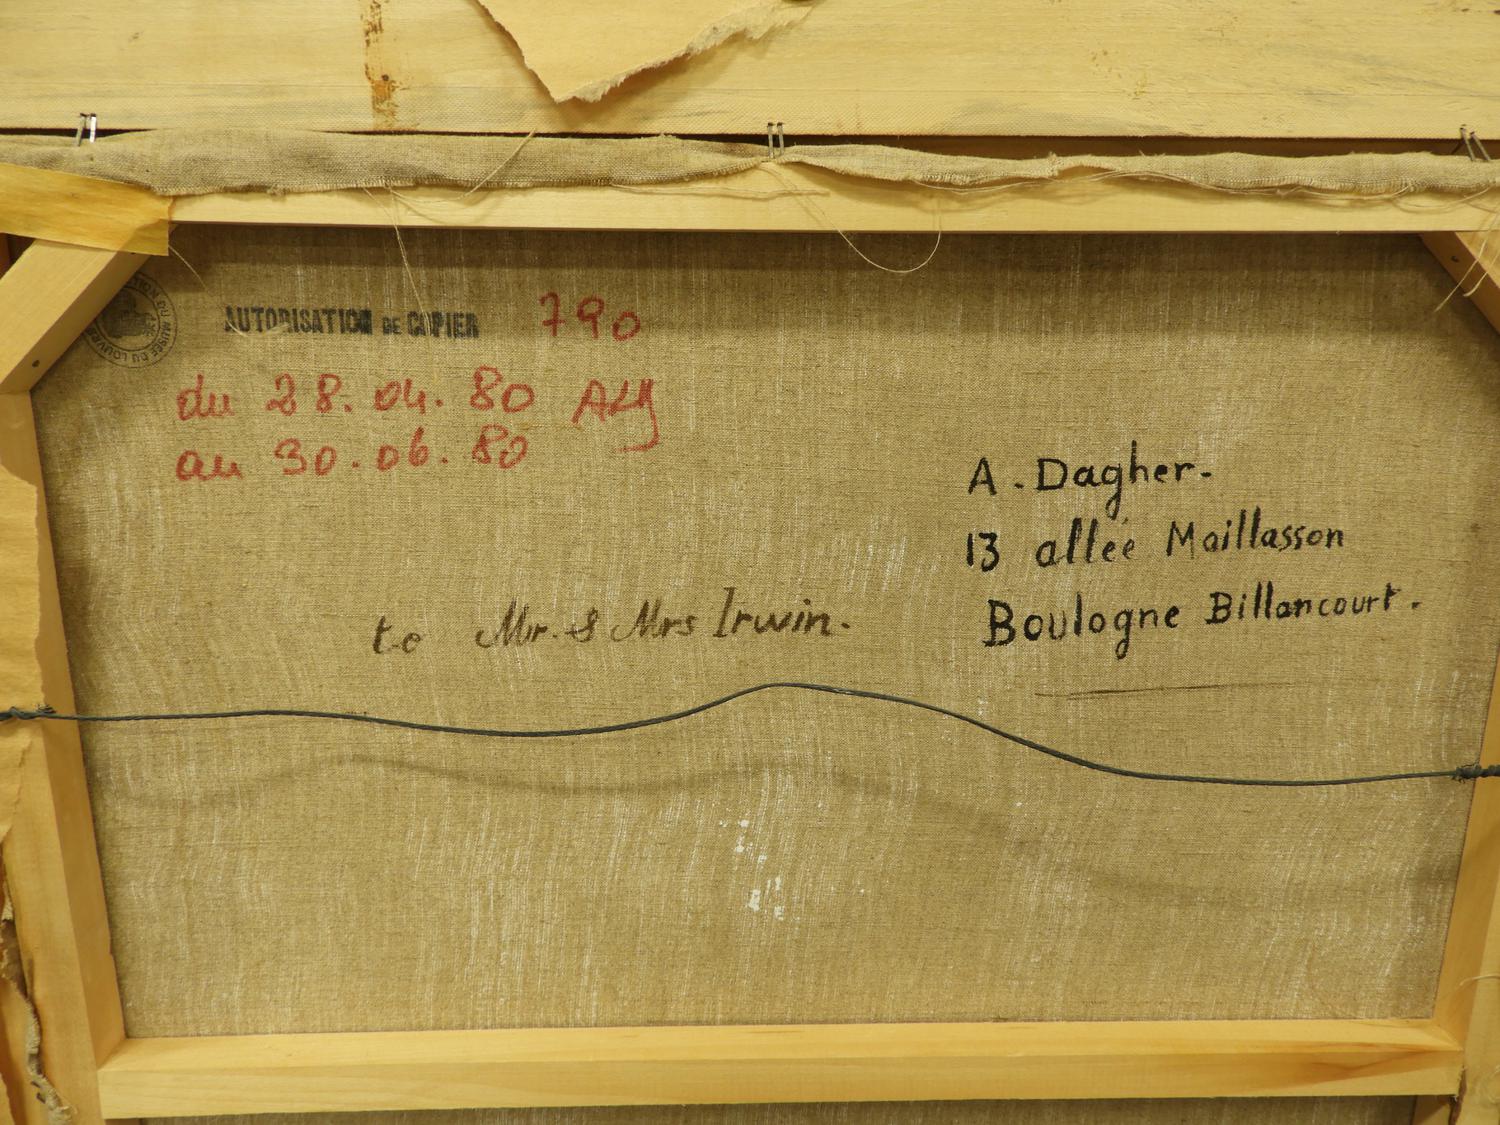 MUSÉE DU LOUVRE
AUTORISATION DE COPIER 790
du 28.04.80
au 30.06.80
A. Dagher.
13 allée Maillasson
Boulogne Billancourt.
to Mr. & Mrs Irwin.